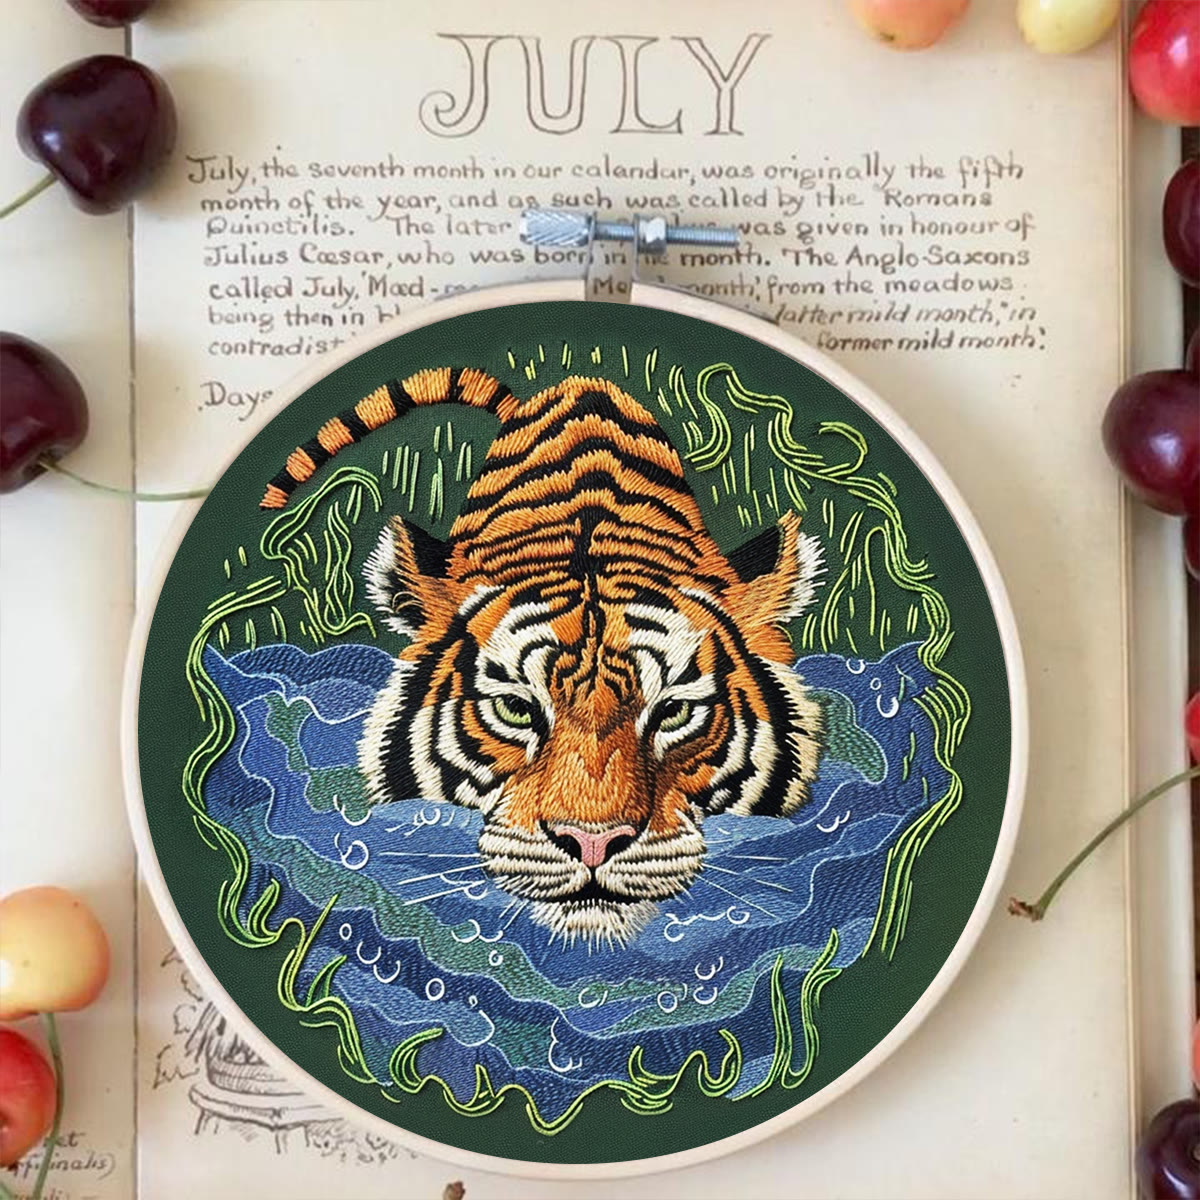 JULY
July, the seventh month in our calandar, was originally the fifth
month of the year, and as such was called by the Romans
Quinctilis. The later was given in honour of
Julius Cæsar, who was born in month. The Anglo-Saxons
called July, 'Mæd- month', from the meadows
being then in latter mild month," in
contradist former mild month'.
Days